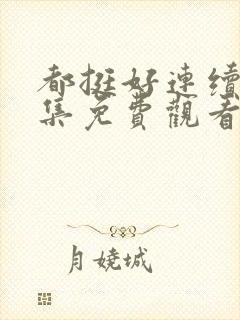 都挺好連續
集免費觀看
月嬈城